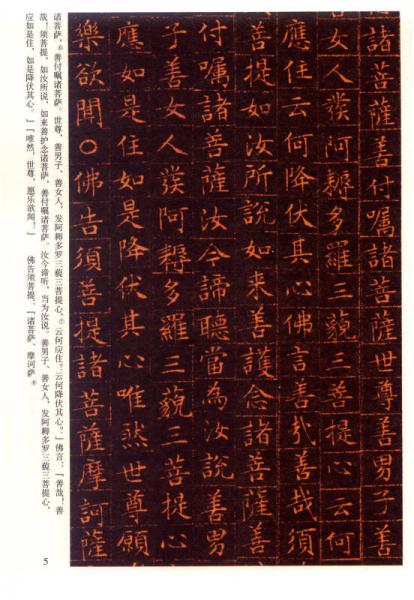 諸菩薩善付囑諸菩薩世尊善男子善
女人發阿耨多羅三藐三菩提心云何
應住云何降伏其心佛言善哉善哉須
菩提如汝所說如來善護念諸菩薩善
付囑諸菩薩汝今諦聽當為汝說善男
子善女人發阿耨多羅三藐三菩提心
應如是住如是降伏其心唯然世尊願
樂欲聞○佛告須菩提諸菩薩摩訶薩
诸菩萨，⑥善付嘱诸菩萨。世尊，善男子、善女人，发阿耨多罗三藐三菩提心，⑦云何应住？云何降伏其心？」佛言：「善哉！善
哉！须菩提，如汝所说，如来善护念诸菩萨，善付嘱诸菩萨。汝今谛听，当为汝说。善男子、善女人，发阿耨多罗三藐三菩提心，
应如是住，如是降伏其心。」「唯然，世尊，愿乐欲闻！」　佛告须菩提：「诸菩萨、摩诃萨⑧
5